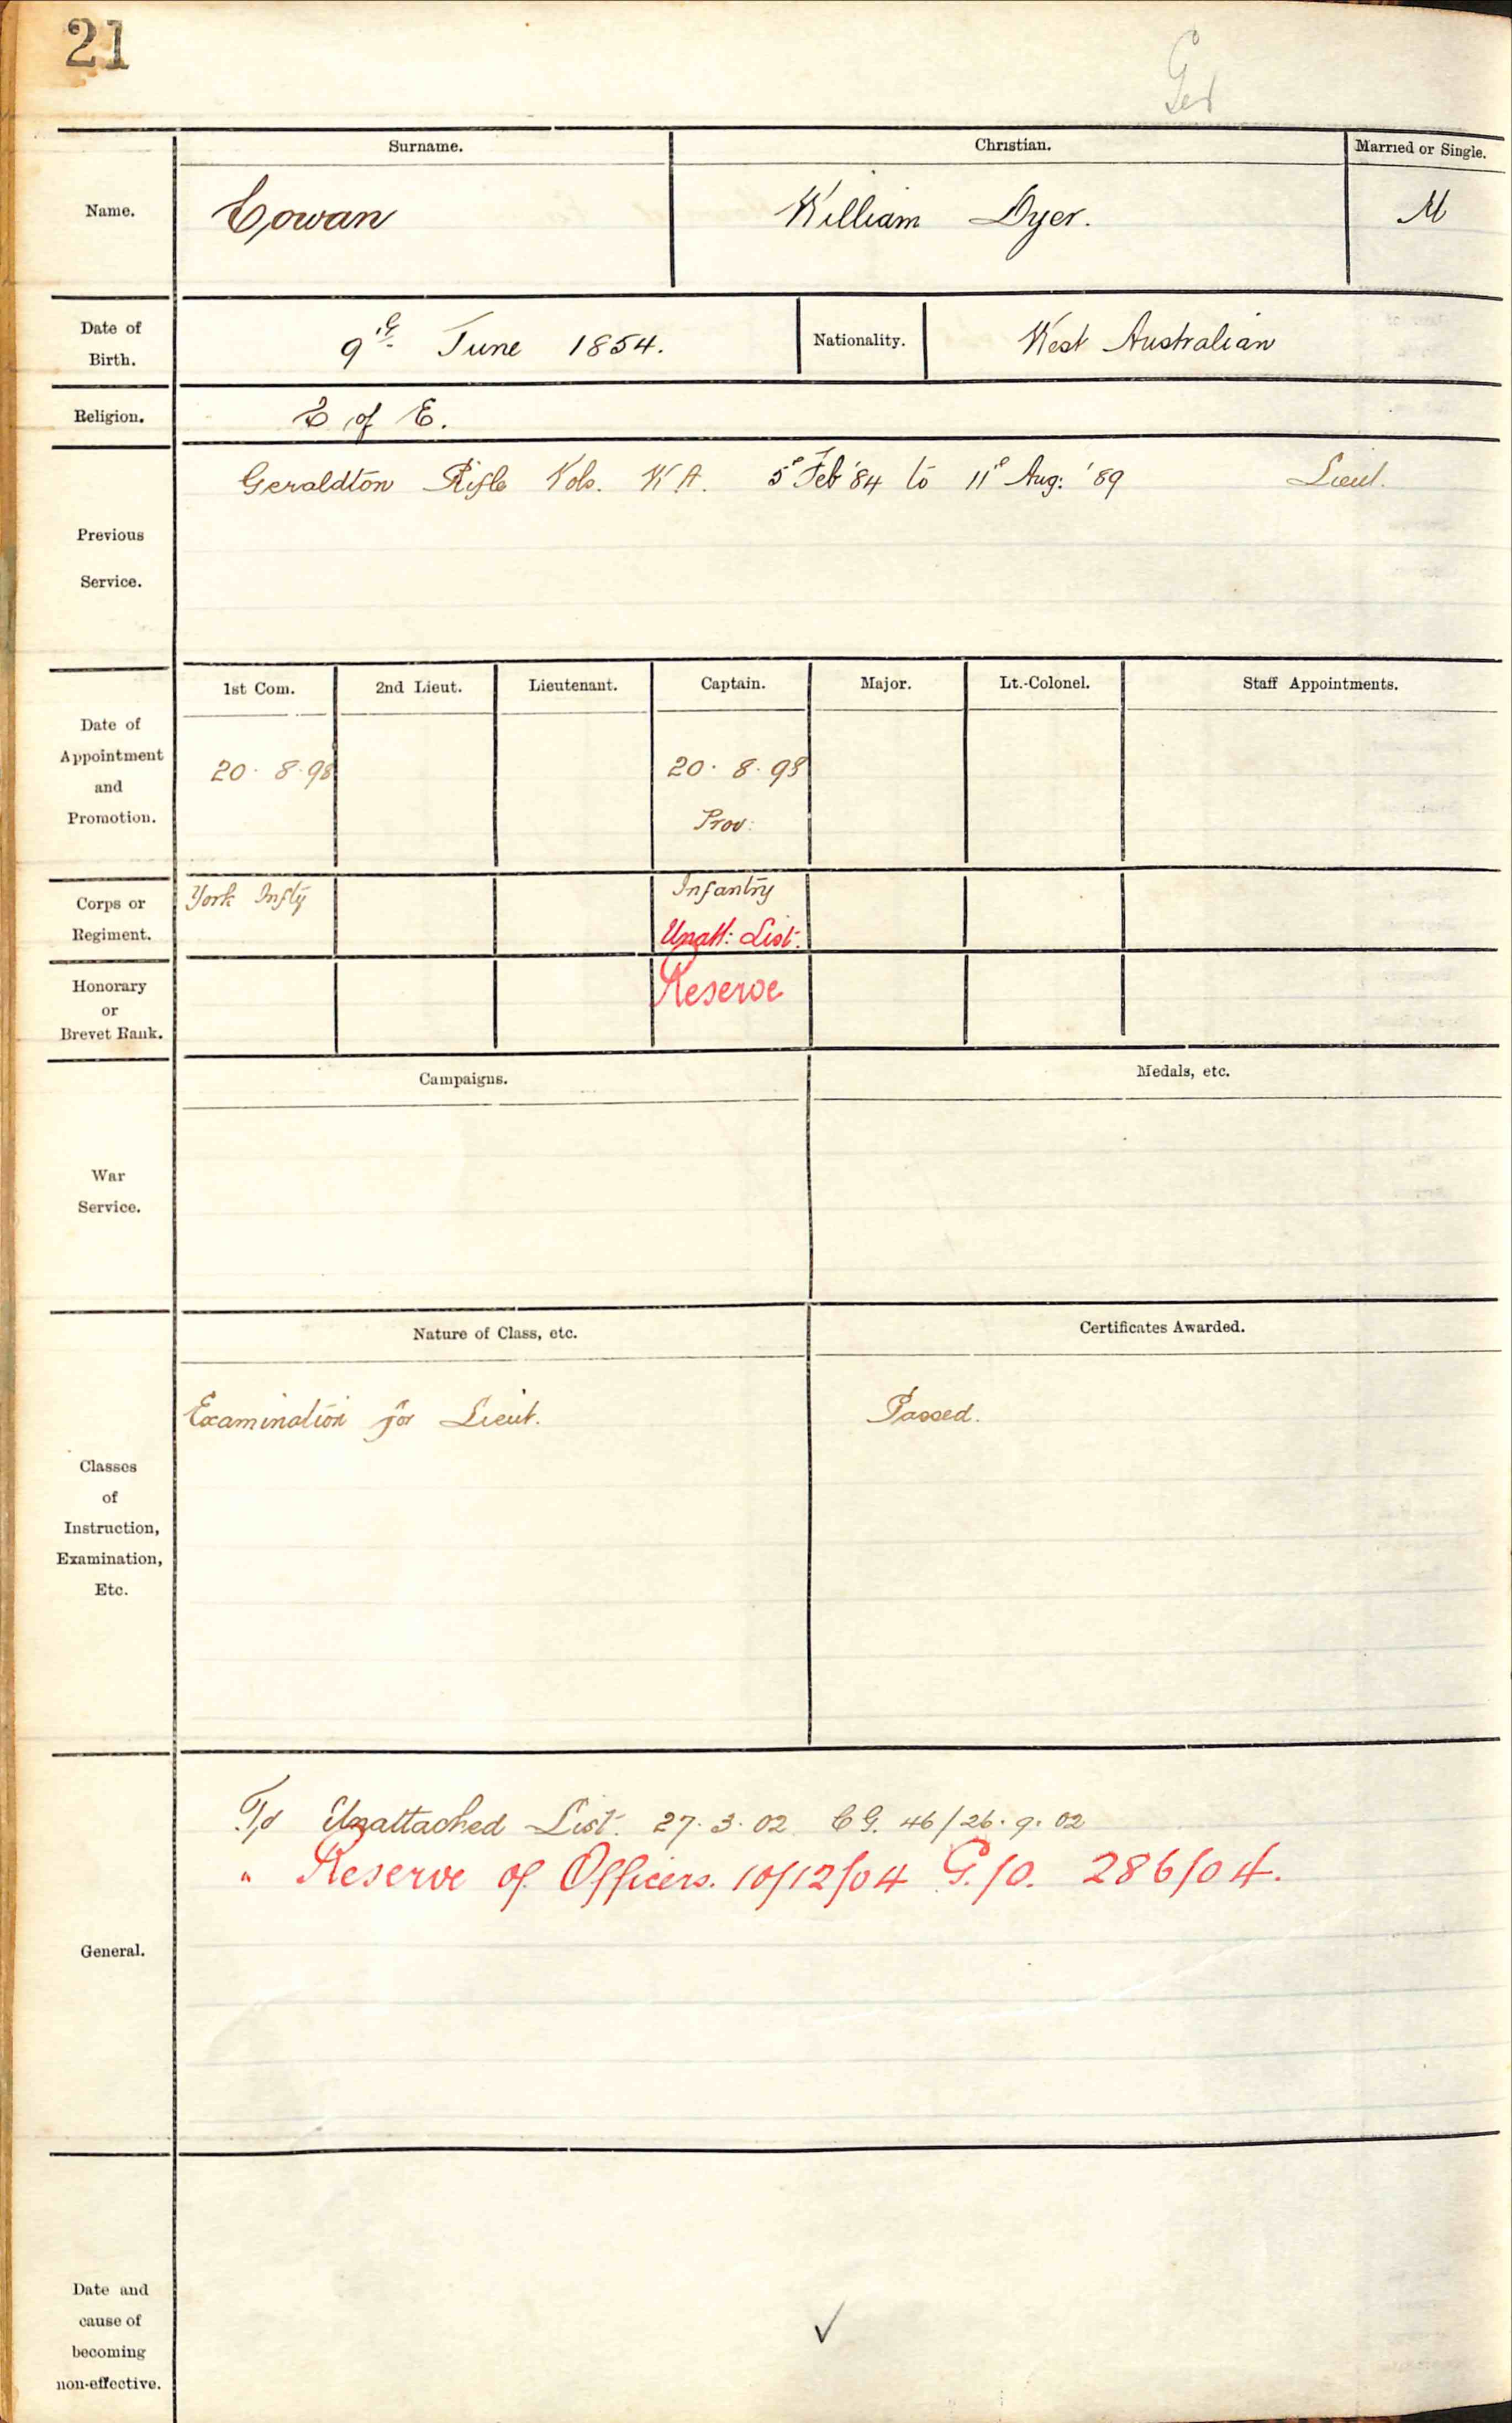 21
Surname. Christian. Married or Single.
Name. Cowan William Dyer. M
Date of Birth. 9th June 1854. Nationality. West Australian
Religion. C of E.
Geraldton Rifle Vols. W.A. 5th Feb '84 to 11th Aug: '89 Lieut.
Previous
Service.
1st Com. 2nd Lieut. Lieutenant. Captain. Major. Lt.-Colonel. Staff Appointments.
Date of
Appointment
and
Promotion.
20. 8. 98 20. 8. 98
Prov:
Corps or
Regiment.
York Infty Infantry
Unatt: List.
Honorary
or
Brevet Rank.
Reserve
Campaigns. Medals, etc.
War
Service.
Nature of Class, etc. Certificates Awarded.
Examination for Lieut. Passed.
Classes
of
Instruction,
Examination,
Etc.
Unattached List. 27. 3. 02 C G. 46/26. 9. 02
" Reserve of Officers. 10/12/04 G./O. 286/04.
General.
Date and
cause of
becoming
non-effective.